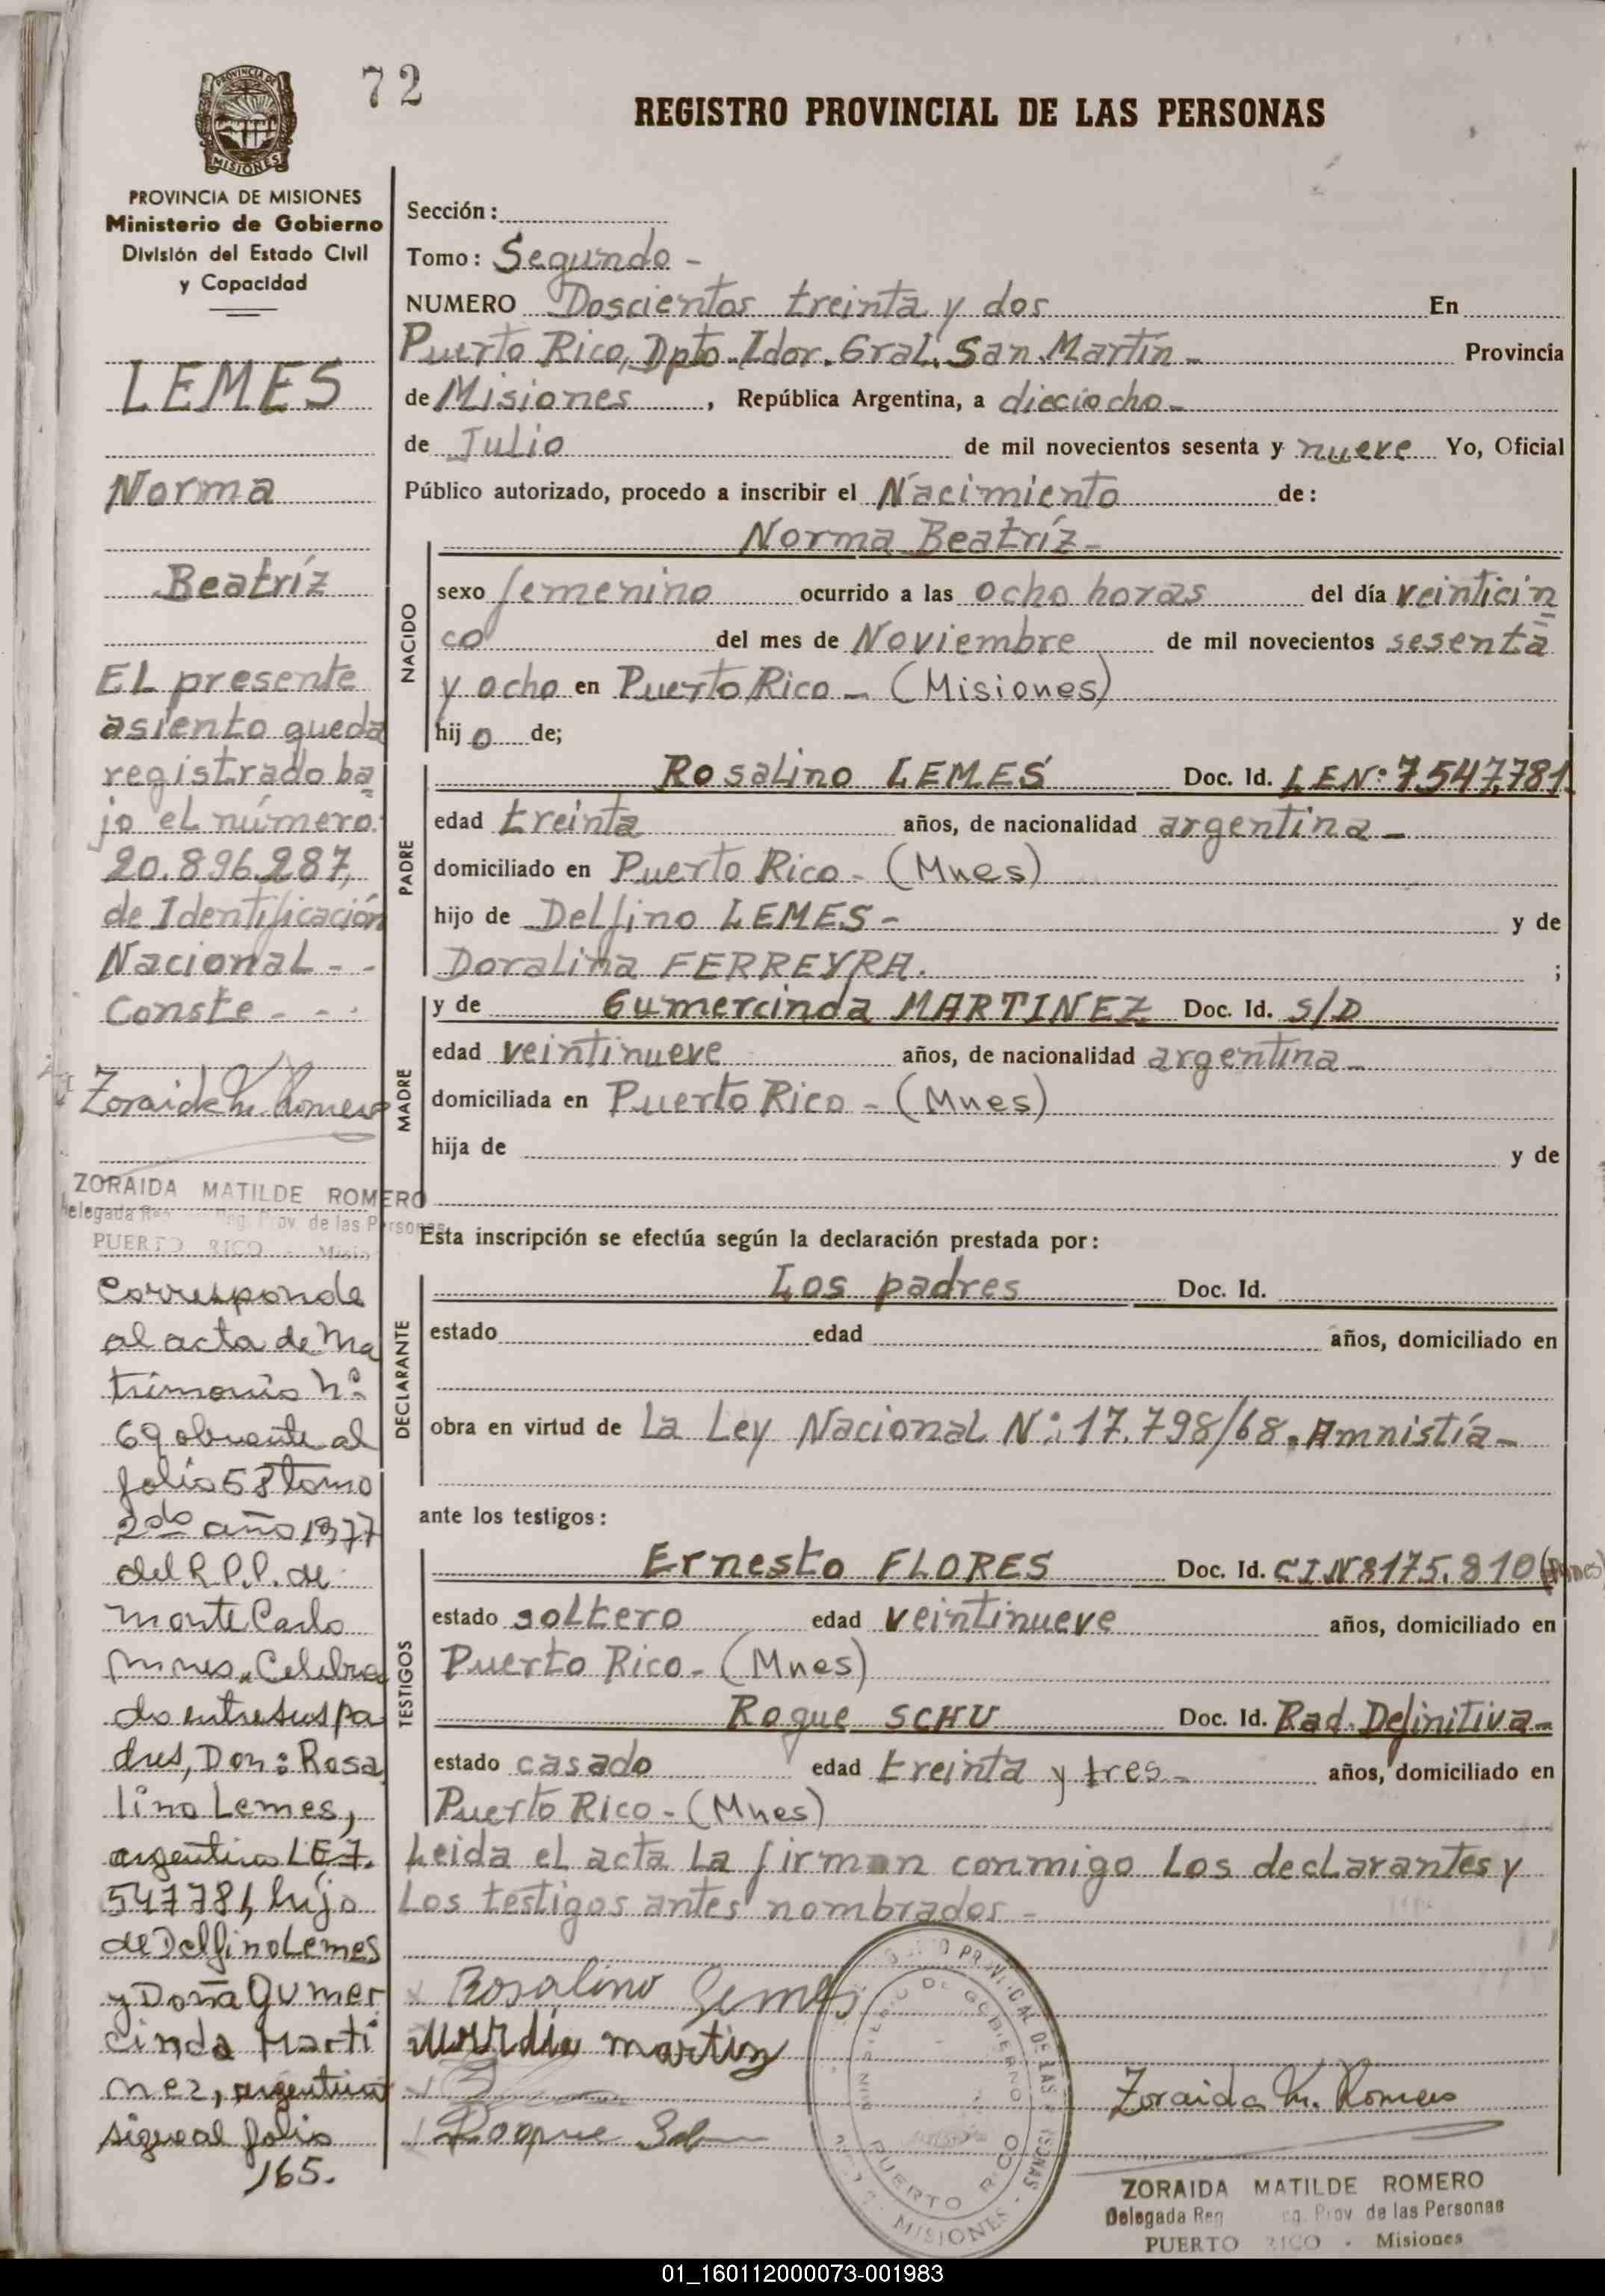 72
REGISTRO PROVINCIAL DE LAS PERSONAS
PROVINCIA DE
MISIONES
PROVINCIA DE MISIONES
Ministerio de Gobierno
División del Estado Civil
y Capacidad
LEMES
Norma
Beatríz
El presente
asiento queda
registrado ba
jo el número
20.896.287,
de Identificación
Nacional - -
Conste - - -
Zoraida M. Romero
ZORAIDA MATILDE ROMERO
Delegada Reg. Prov. de las Personas
PUERTO RICO - Misio
Corresponde
al acta de Ma
trimonio Nº
69 obrante al
folio 58 tomo
2do año 1977
del R.P.P. de
Monte Carlo
Mnes. Celebra
do entre sus pa
dres, Don: Rosa
lino Lemes,
argentino L.E 7.
547781, hijo
de Delfino Lemes
y Doña Gumer
cinda Marti
nez, argentina
sigue al folio
165.
Sección:
Tomo: Segundo -
NUMERO Doscientos treinta y dos En
Puerto Rico, Dpto. Ldor. Gral. San Martín - Provincia
de Misiones, República Argentina, a dieciocho -
de Julio de mil novecientos sesenta y nueve Yo, Oficial
Público autorizado, procedo a inscribir el Nacimiento de:
Norma Beatríz -
NACIDO
sexo femenino ocurrido a las ocho horas del día veinticin
co del mes de Noviembre de mil novecientos sesenta
y ocho en Puerto Rico - (Misiones)
hijo de;
PADRE
Rosalino LEMES Doc. Id. LENº 7.547.781.
edad treinta años, de nacionalidad argentina -
domiciliado en Puerto Rico - (Mnes)
hijo de Delfino LEMES - y de
Doralina FERREYRA. ;
MADRE
y de Gumercinda MARTINEZ Doc. Id. S/D
edad veintinueve años, de nacionalidad argentina -
domiciliada en Puerto Rico - (Mnes)
hija de y de
Esta inscripción se efectúa según la declaración prestada por:
DECLARANTE
Los padres Doc. Id.
estado edad años, domiciliado en
obra en virtud de La Ley Nacional Nº 17.798/68. Amnistía -
ante los testigos:
TESTIGOS
Ernesto FLORES Doc. Id. CINº 175.810 (Mnes)
estado soltero edad veintinueve años, domiciliado en
Puerto Rico - (Mnes)
Roque SCHU Doc. Id. Rad. Definitiva -
estado casado edad treinta y tres - años, domiciliado en
Puerto Rico - (Mnes)
Leida el acta La firman conmigo Los declarantes y
Los testigos antes nombrados -
Rosalino Lemes
Roque
Zoraida M. Romero
MINISTERIO DE GOBIERNO
PUERTO RICO
MISIONES
ZORAIDA MATILDE ROMERO
Delegada Reg. Prov de las Personas
PUERTO RICO - Misiones
01_160112000073-001983